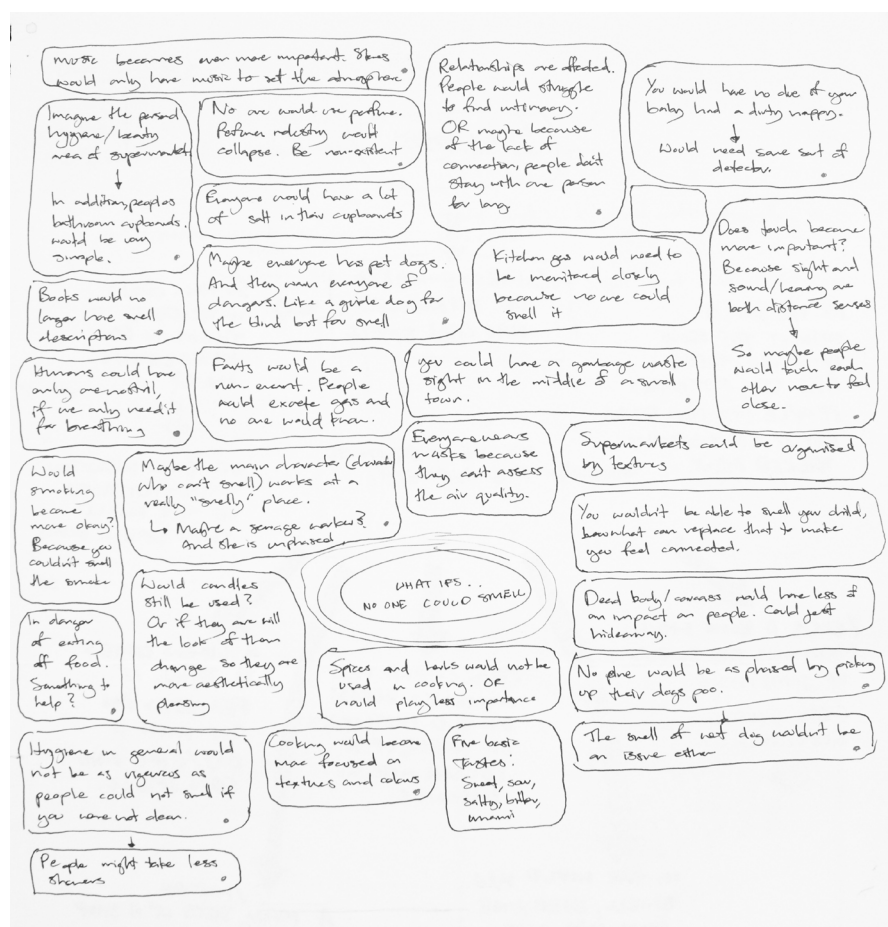 music becomes even more important. Stores
would only have music to set the atmosphere
Imagine the personal
hygiene/beauty
area of supermarkets
In addition, peoples
bathroom cupboards
would be very
simple.
No one would use perfume.
Perfume industry would
collapse. Be non-existent
Everyone would have a lot
of salt in their cupboards
Relationships are affected.
People would struggle
to find intimacy.
OR maybe because
of the lack of
connection, people don't
stay with one person
for long.
You would have no clue if your
baby had a dirty nappy.
Would need some sort of
detector.
Books would no
longer have smell
descriptions
Maybe everyone has pet dogs.
And they warn everyone of
dangers. Like a guide dog for
the blind but for smell
Kitchen gas would need to
be monitored closely
because no one could
smell it
Does touch become
more important?
Because sight and
sound/hearing are
both distance senses
So maybe people
would touch each
other more to feel
close.
Humans could have
only one nostril,
if we only need it
for breathing
Farts would be a
non-event. People
would excrete gas and
no one would know.
you could have a garbage waste
sight in the middle of a small
town.
Would
smoking
become
more okay?
Because you
couldn't smell
the smoke
Maybe the main character (character
who can't smell) works at a
really "smelly" place.
Maybe a sewage worker?
And she is unphased
Everyone wears
masks because
they can't assess
the air quality.
Supermarkets could be organised
by textures
You wouldn't be able to smell your child,
how/what can replace that to make
you feel connected.
WHAT IFS..
NO ONE COULD SMELL
Would candles
still be used?
Or if they are will
the look of them
change so they are
more aesthetically
pleasing
Dead body/carcass would have less of
an impact on people. Could just
hideaway.
In danger
of eating
off food.
Something to
help?
Spices and herbs would not be
used in cooking. OR
would play less importance
No one would be as phased by picking
up their dogs poo.
The smell of wet dog wouldn't be
an issue either
Hygiene in general would
not be as vigorous as
people could not smell if
you were not clean.
People might take less
showers
Cooking would become
more focused on
textures and colours
Five basic
tastes:
Sweet, sour,
salty, bitter,
umami